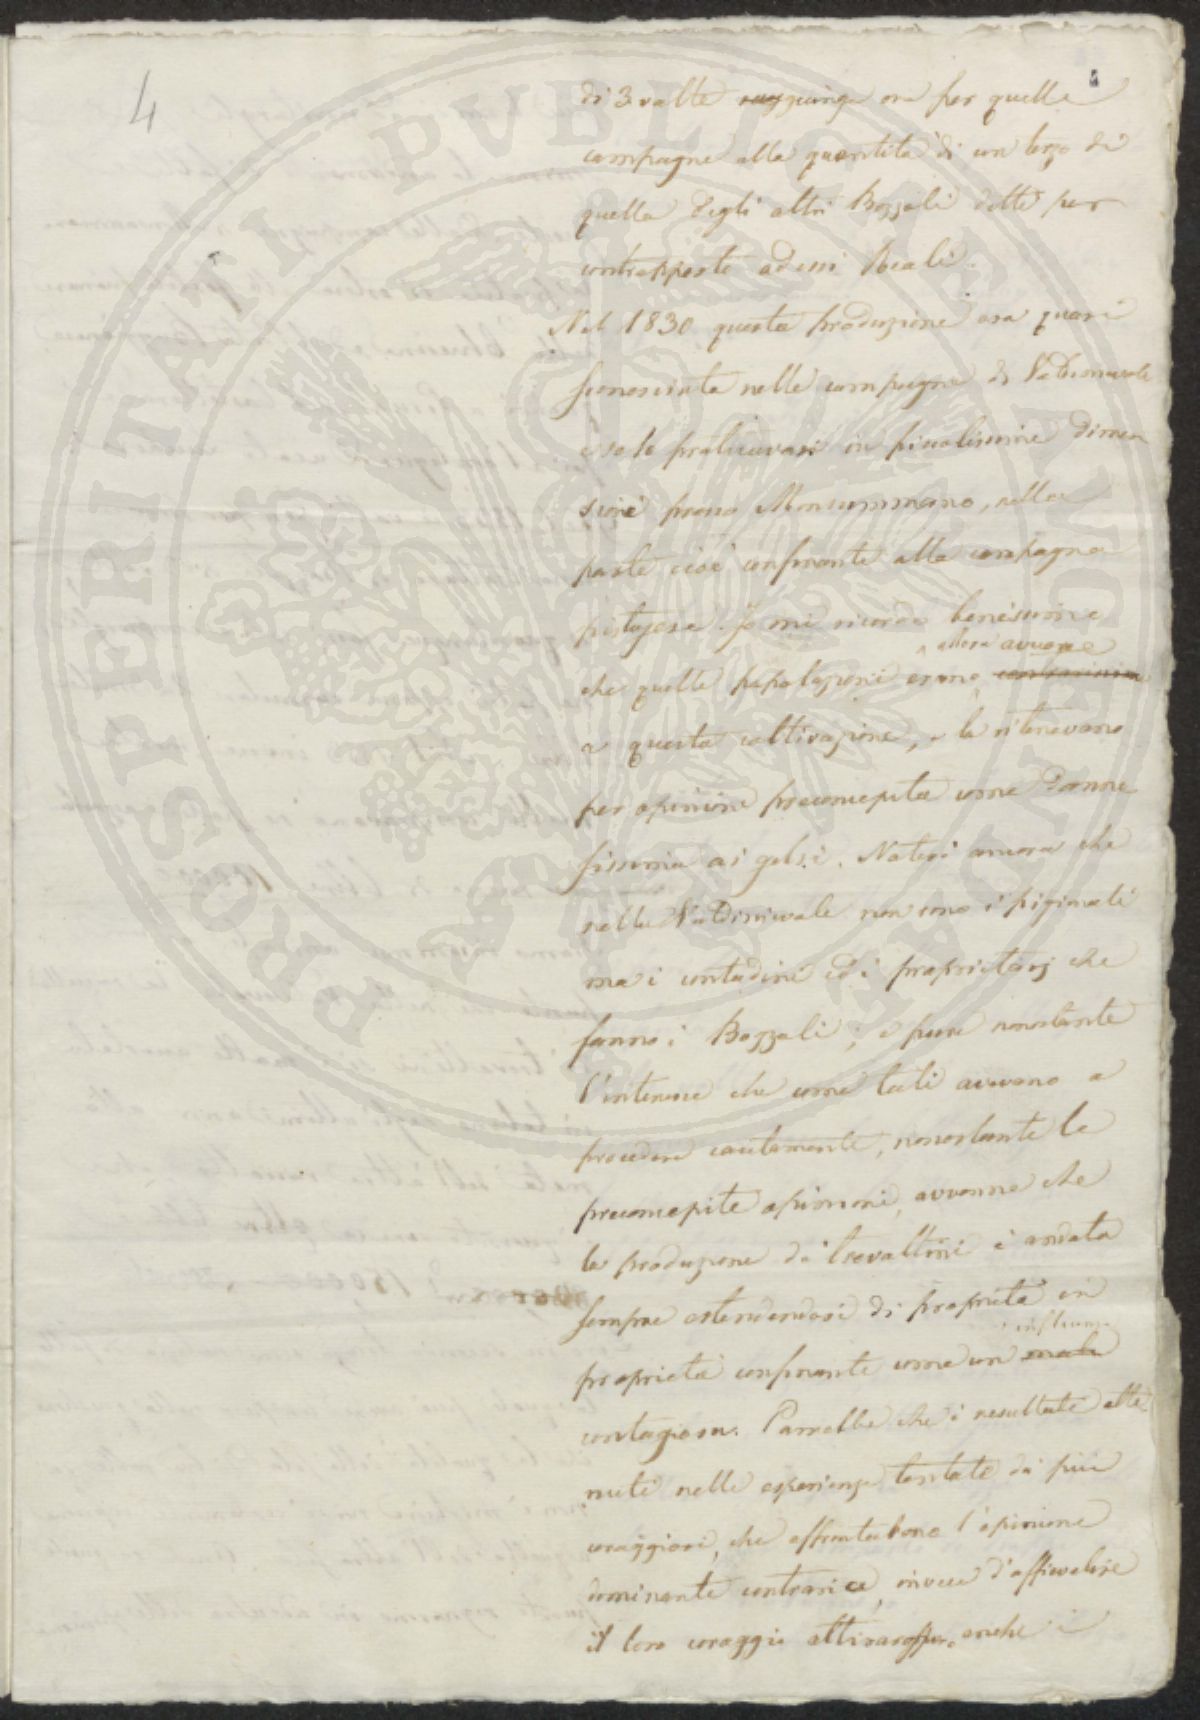 4
di 3 volte raggiunge ora per quelle
campagne alla quantità di un terzo di
quella degli altri Bozzoli detti per
contrapposto ad essi Reali.
Nel 1830 questa produzione era quasi
sconosciuta nelle campagne di Valdinievole
e solo praticavasi in piccolissime dimen
sioni presso Monsummano, nella
parte cioè confinante alla campagna
pistojese. Io mi ricordo benissimo
che quelle popolazioni erano allora avverse
a questa coltivazione, e la ritenevano
per opinione preconcepita come danno
sissima ai gelsi. Notisi ancora che
nella Valdinievole non sono i pigionali
ma i contadini ed i proprietarj che
fanno i Bozzoli; e pure nonostante
l'interesse che come tali avevano a
procedere cautamente, nonostante le
preconcepite opinioni, avvenne che
la produzione di trevoltini è andata
sempre estendendosi di proprietà in
proprietà confinante come un influenza
contagiosa. Parrebbe che i resultati otte
nuti nelle esperienze tentate da più
coraggiosi, che affrontarono l'opinione
dominante contraria, invece d'affievolire
il loro coraggio attirassero anche i
PVBLICAE
PROSPERITATI